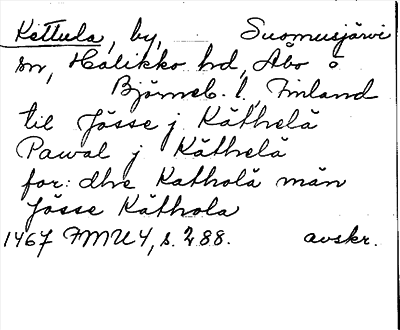 Kettula, by, Suomusjärvi
sn, Halikko hd, Åbo o
Björneb. l, Finland
til Jösse j Käthelä
Pawal j Käthelä
for: dhe Katholä män
Jösse Käthola
1467 FMU 4, s. 288. avskr.